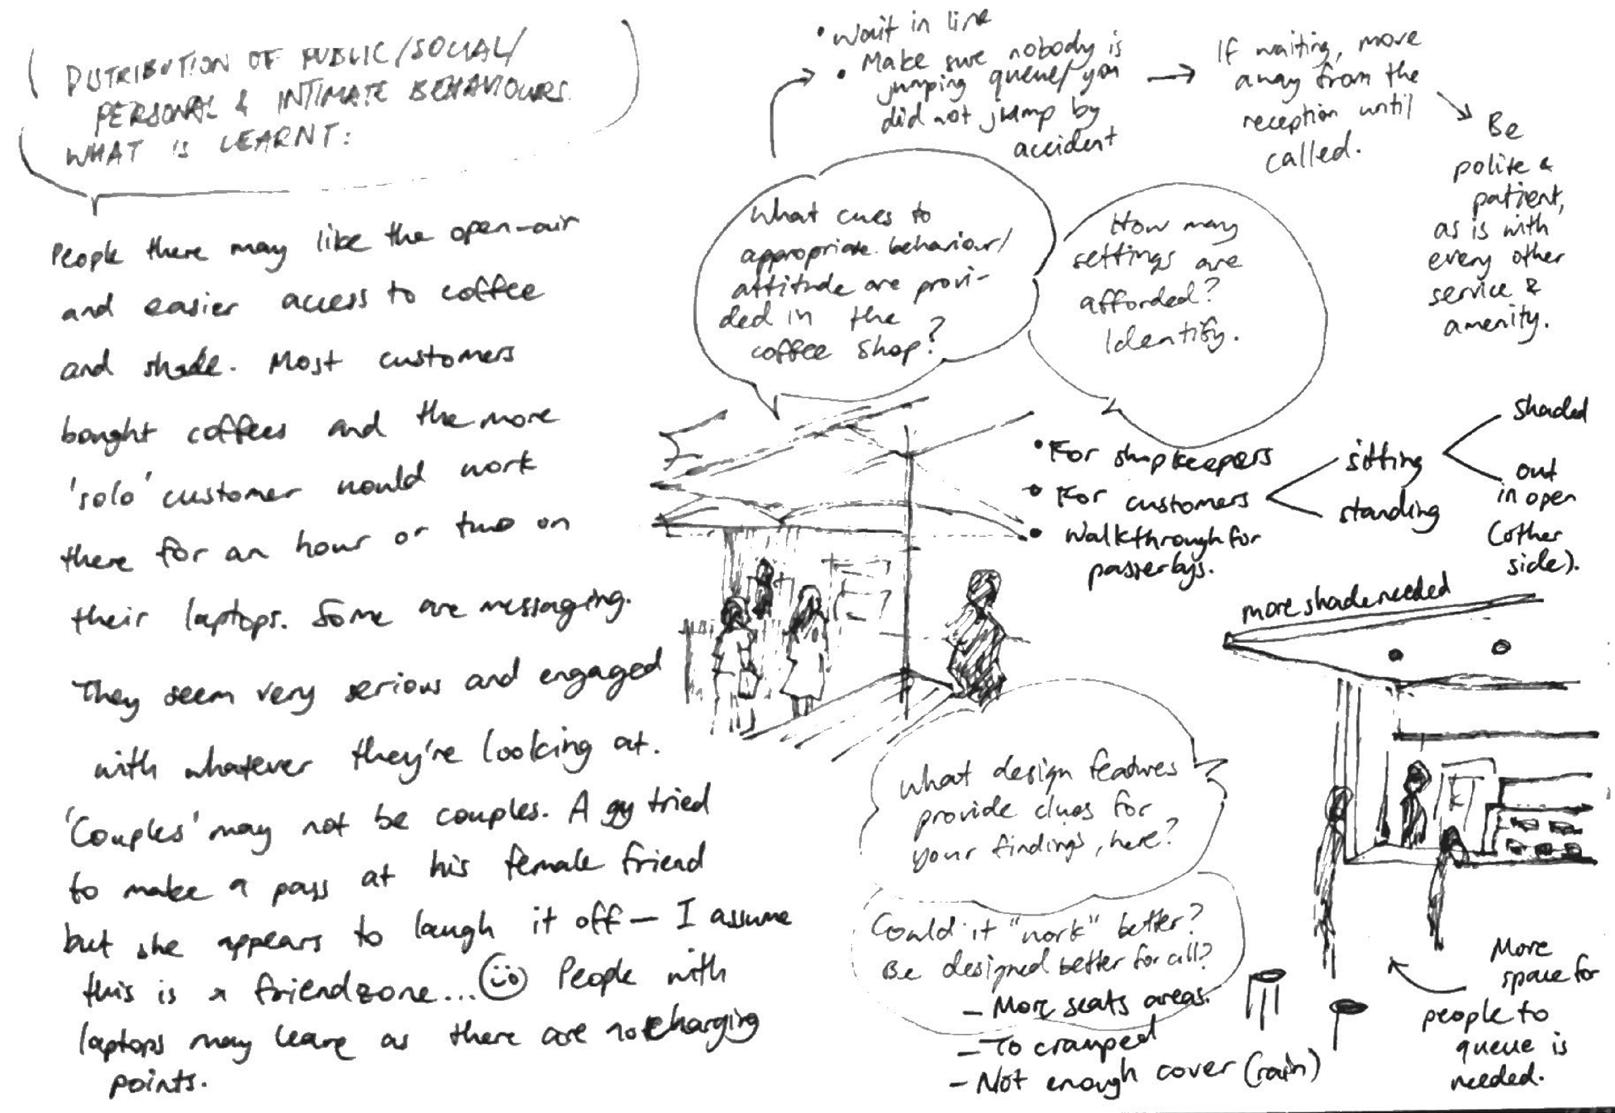 DISTRIBUTION OF PUBLIC/SOCIAL/
PERSONAL & INTIMATE BEHAVIOURS.
WHAT IS LEARNT:
People there may like the open-air
and easier access to coffee
and shade. Most customers
bought coffees and the more
'solo' customer would work
there for an hour or two on
their laptops. Some are messaging.
They seem very serious and engaged
with whatever they're looking at.
'Couples' may not be couples. A gy tried
to make a pass at his female friend
but she appears to laugh it off — I assume
this is a friendzone... People with
laptops may leave as there are not charging
points.
• Wait in line
• Make sure nobody is
jumping queue/you
did not jump by
accident
If waiting, move
away from the
reception until
called.
Be
polite &
patient,
as is with
every other
service &
amenity.
What cues to
appropriate behaviour/
attitude are provi-
ded in the
coffee shop?
How many
settings are
afforded?
Identify.
• For shopkeepers
• For customers
• Walkthrough for
passerbys.
sitting
standing
shaded
out
in open
(other
side).
more shade needed
What design features
provide clues for
your findings, here?
Could it "work" better?
Be designed better for all?
- More seats areas.
- To cramped
- Not enough cover (rain)
More
space for
people to
queue is
needed.